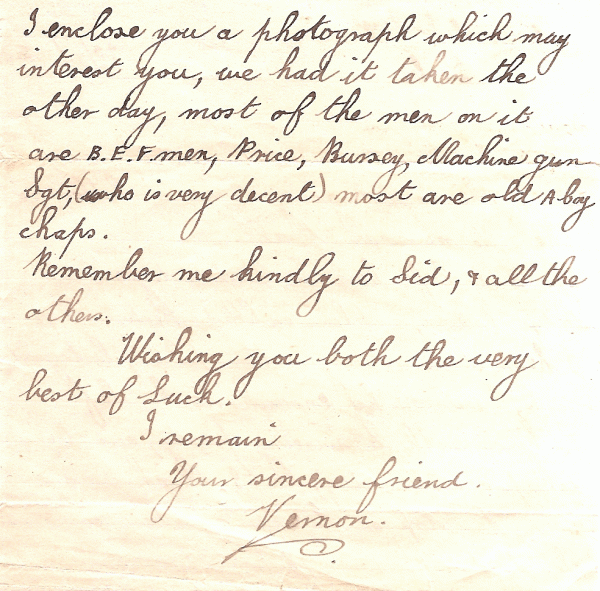 I enclose you a photograph which may
interest you, we had it taken the
other day, most of the men on it
are B.E.F. men, Price, Bursey, Machine gun
Sgt, (who is very decent) most are old A. boy
chaps.
Remember me kindly to Sid, & all the
others.
Wishing you both the very
best of Luck.
I remain
Your sincere friend.
Vernon.